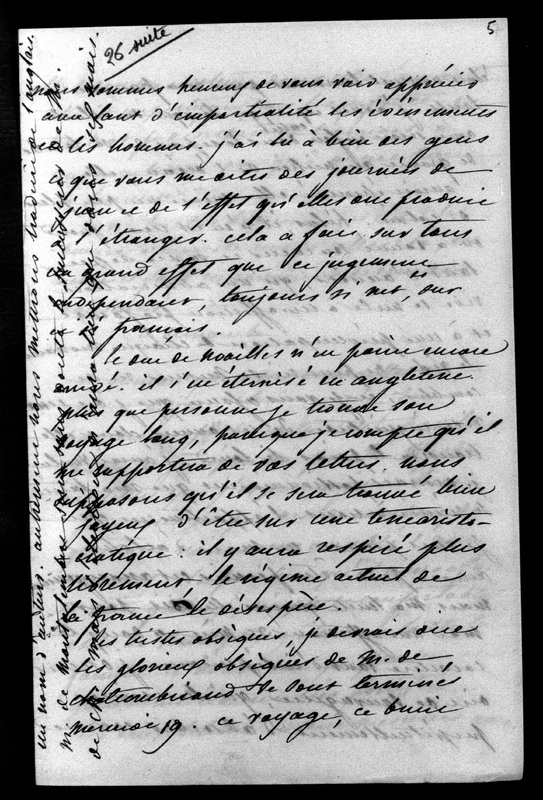 26 suite
5
nous sommes heureux de vous voir apprécier
avec tant d'impartialité les événements
et les hommes. j'ai lu à bien des gens
ce que vous me dites des journées de
juin et de l'effet qu'elles ont produit
à l'étranger. cela a fait sur tous
un grand effet que ce jugement
indépendant, toujours si net, sur
français.
le duc de Noailles n'est point encore
arrivé. il s'est éternisé en angleterre.
plus que personne je trouve son
voyage long, parceque je compte qu'il
me rapportera de vos lettres. nous
supposons qu'il se sera trouvé bien
joyeux d'être sur une terre aristo-
cratique. il y aura respiré plus
librement, le régime actuel de
la france le désespère.
les tristes obsèques, je devrais dire
les glorieux obsèques de M. de
chateaubriand se sont terminé
mercredi 19. ce voyage, ce
un nom d'auteur. autrement nous mettrions traduit de l'anglais.
M. de
de